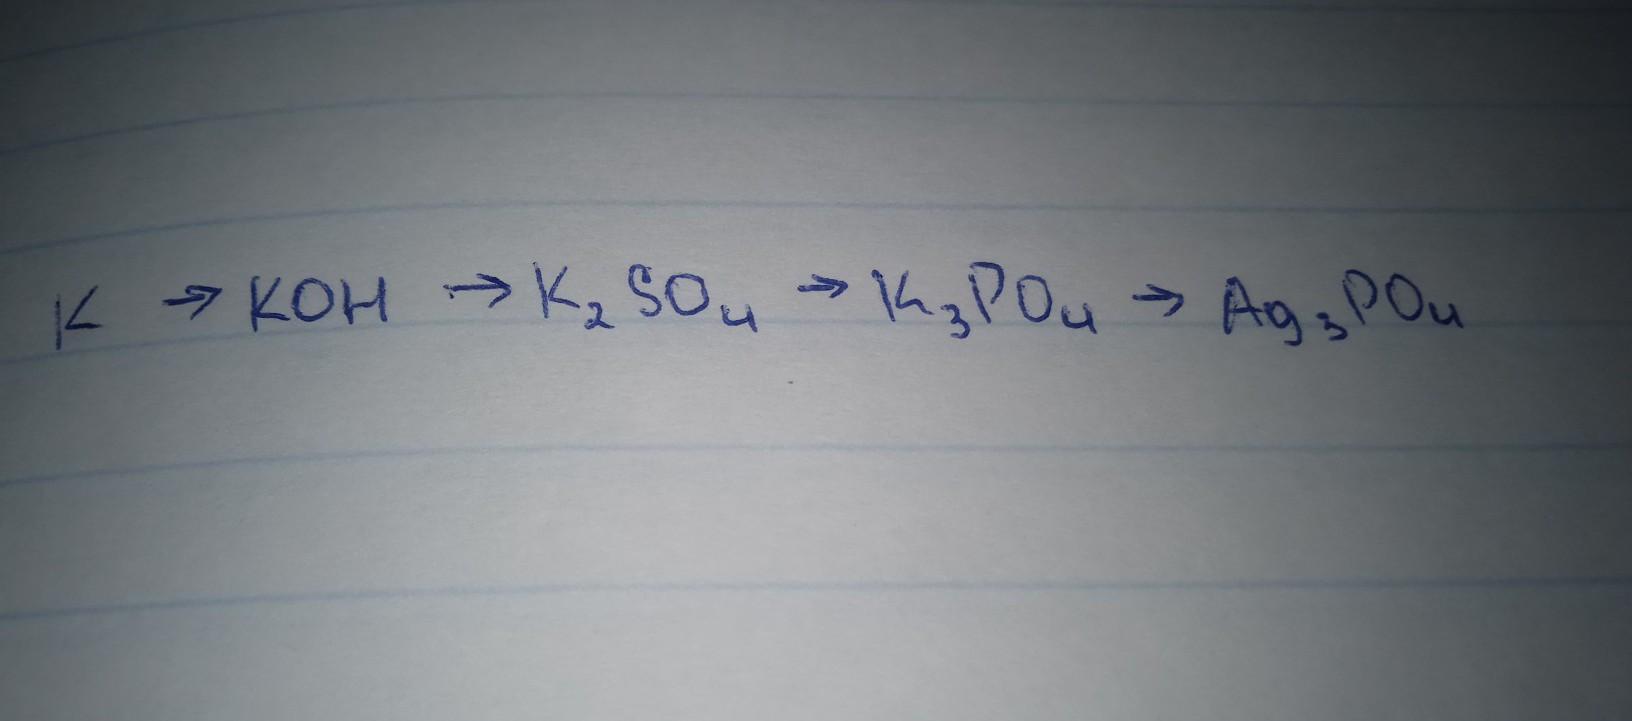 K → KOH → K₂SO₄ → K₃PO₄ → Ag₃PO₄